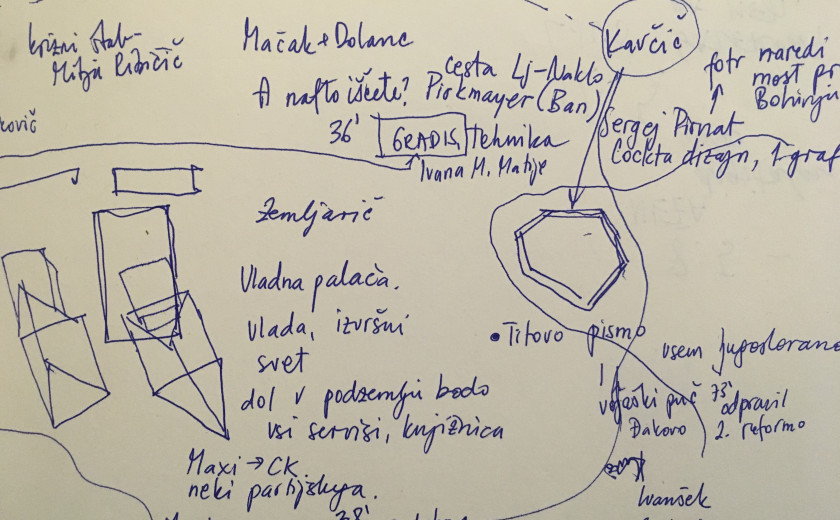 krizni štab-
Mitja Ribičič
ovič
Mačak + Dolanc
A nafto iščete?
cesta Lj-Naklo
Pirkmayer (Ban)
36'
GRADIS, Tehnika
Ivana M. Matije
Karčič
fotr naredi
most pr
Bohinju
Sergej Pirnat
Cockta dizajn, 1. graf
Zemljarič
Vladna palača.
vlada, izvršni
svet
dol v podzemlju bodo
vsi servisi, knjižnica
Maxi → CK
neki partijskega.
38'
• Titovo pismo
vsem
vojaški puč
Đakovo
73'
odpravil
2. reformo
Ivanšek